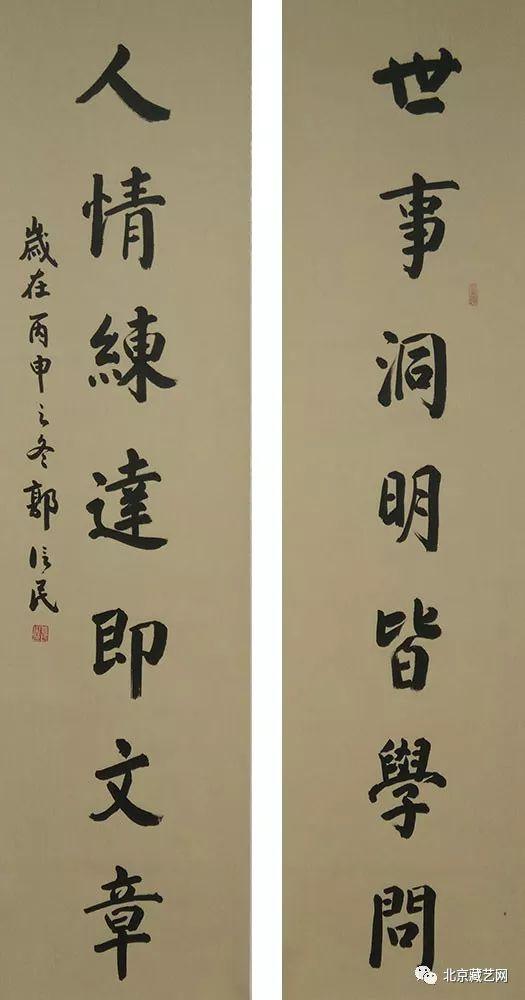 世事洞明皆學問
人情練達即文章
歲在丙申之冬郭信民
北京藏艺网